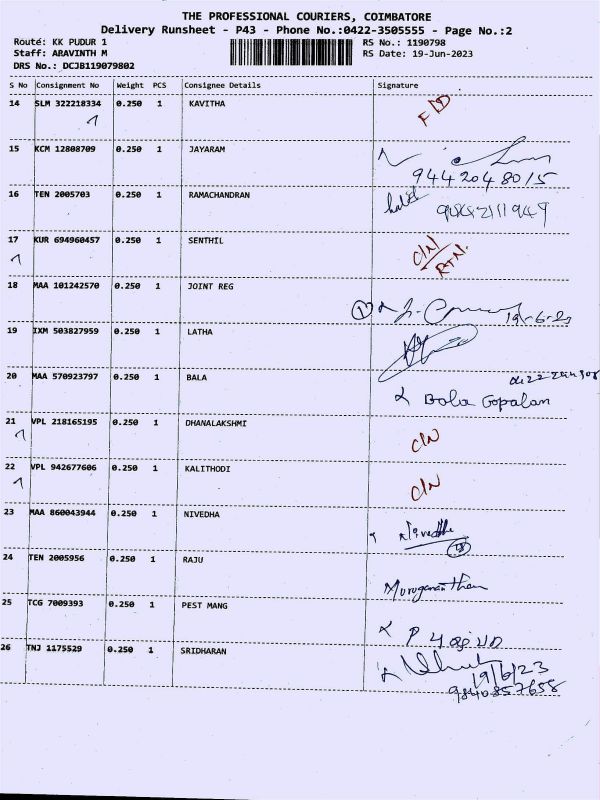 THE PROFESSIONAL COURIERS, COIMBATORE
Delivery Runsheet - P43 - Phone No.:0422-3505555 - Page No.:2
Route: KK PUDUR 1 RS No.: 1190798
Staff: ARAVINTH M RS Date: 19-Jun-2023
DRS No.: DCJB119079802
S No Consignment No Weight PCS Consignee Details Signature
14 SLM 322218334 0.250 1 KAVITHA
15 KCM 12808709 0.250 1 JAYARAM
9442048015
16 TEN 2005703 0.250 1 RAMACHANDRAN
17 KUR 694960457 0.250 1 SENTHIL C/N/
RTN.
18 MAA 101242570 0.250 1 JOINT REG
19 IXM 503827959 0.250 1 LATHA
20 MAA 570923797 0.250 1 BALA
Bala Gopalan
21 VPL 218165195 0.250 1 DHANALAKSHMI C/N
22 VPL 942677606 0.250 1 KALITHODI C/N
23 MAA 860043944 0.250 1 NIVEDHA
Nivedha
24 TEN 2005956 0.250 1 RAJU
Muruganantham
25 TCG 7009393 0.250 1 PEST MANG
26 TNJ 1175529 0.250 1 SRIDHARAN
19/6/23
9840857658